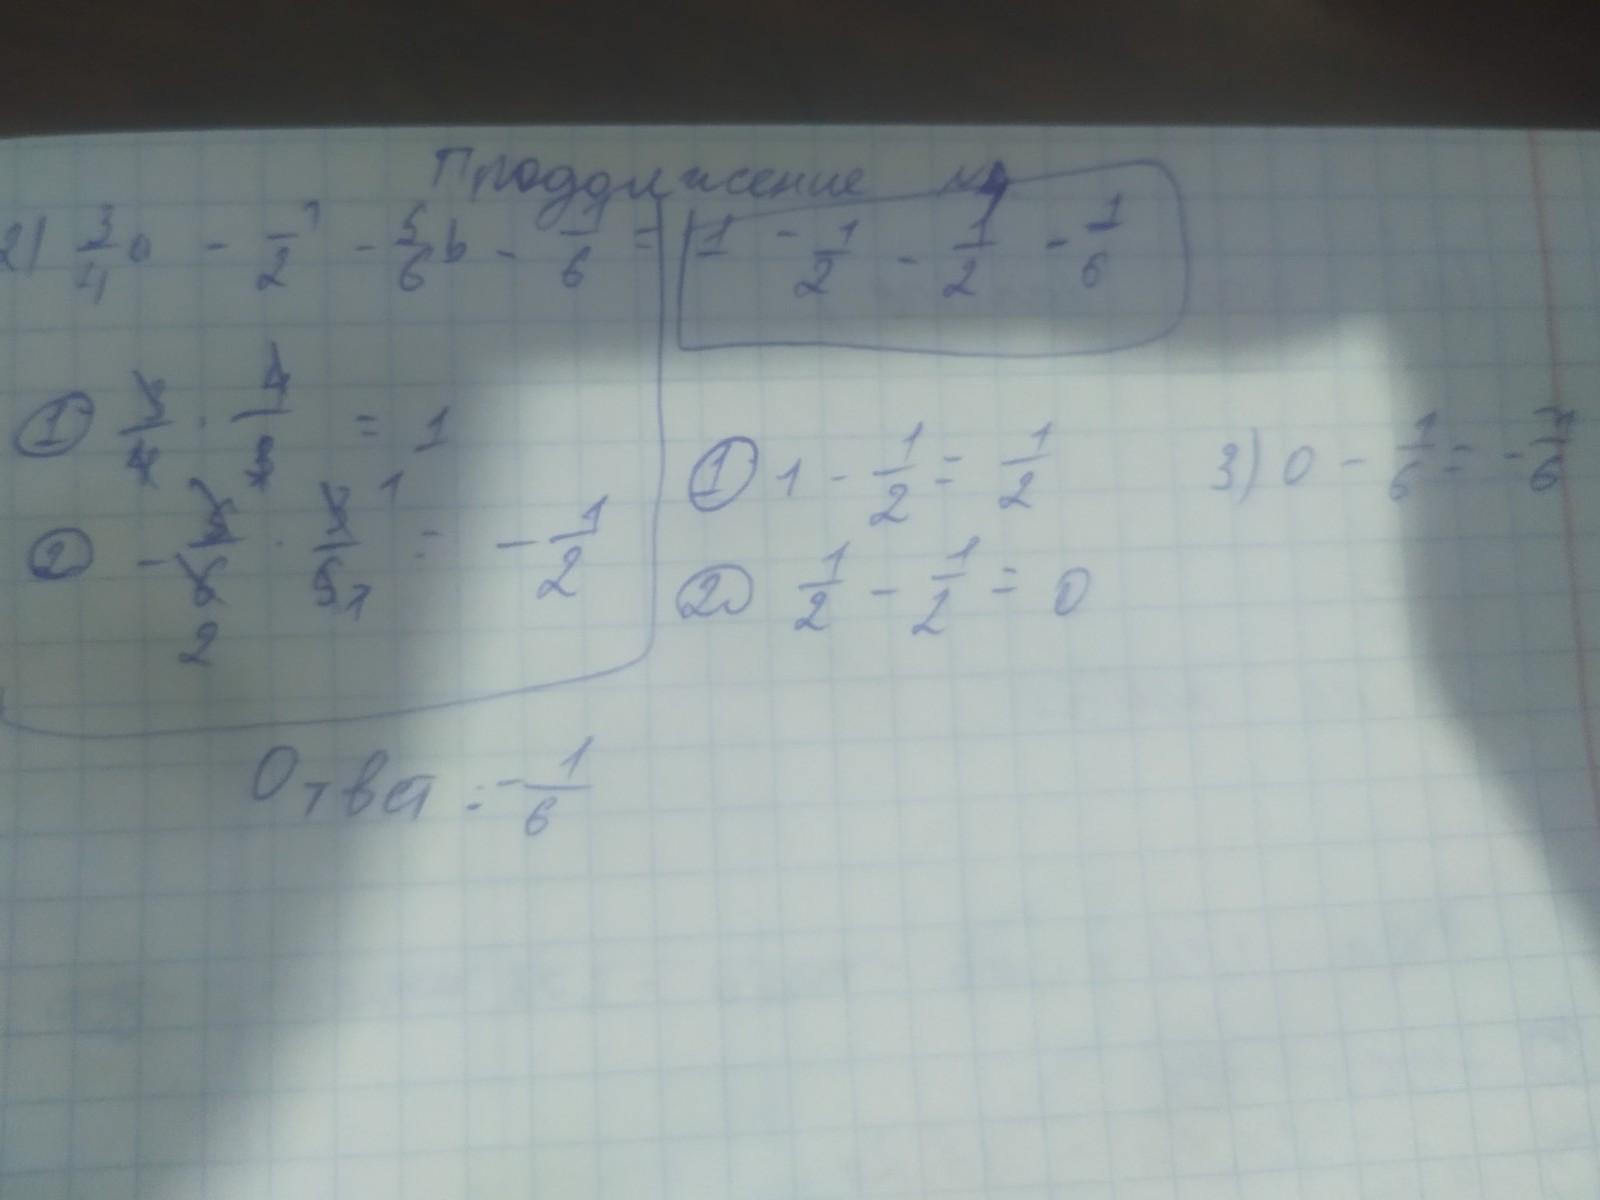 Продолжение №4
2) 3/4 a - 1/2 - 5/6 b - 1/6 = 1 - 1/2 - 1/2 - 1/6
① 3/4 · 4/3 = 1
② - 5/6 · 3/5 = - 1/2
2 1 1
① 1 - 1/2 = 1/2
② 1/2 - 1/2 = 0
3) 0 - 1/6 = - 1/6
Ответ = - 1/6